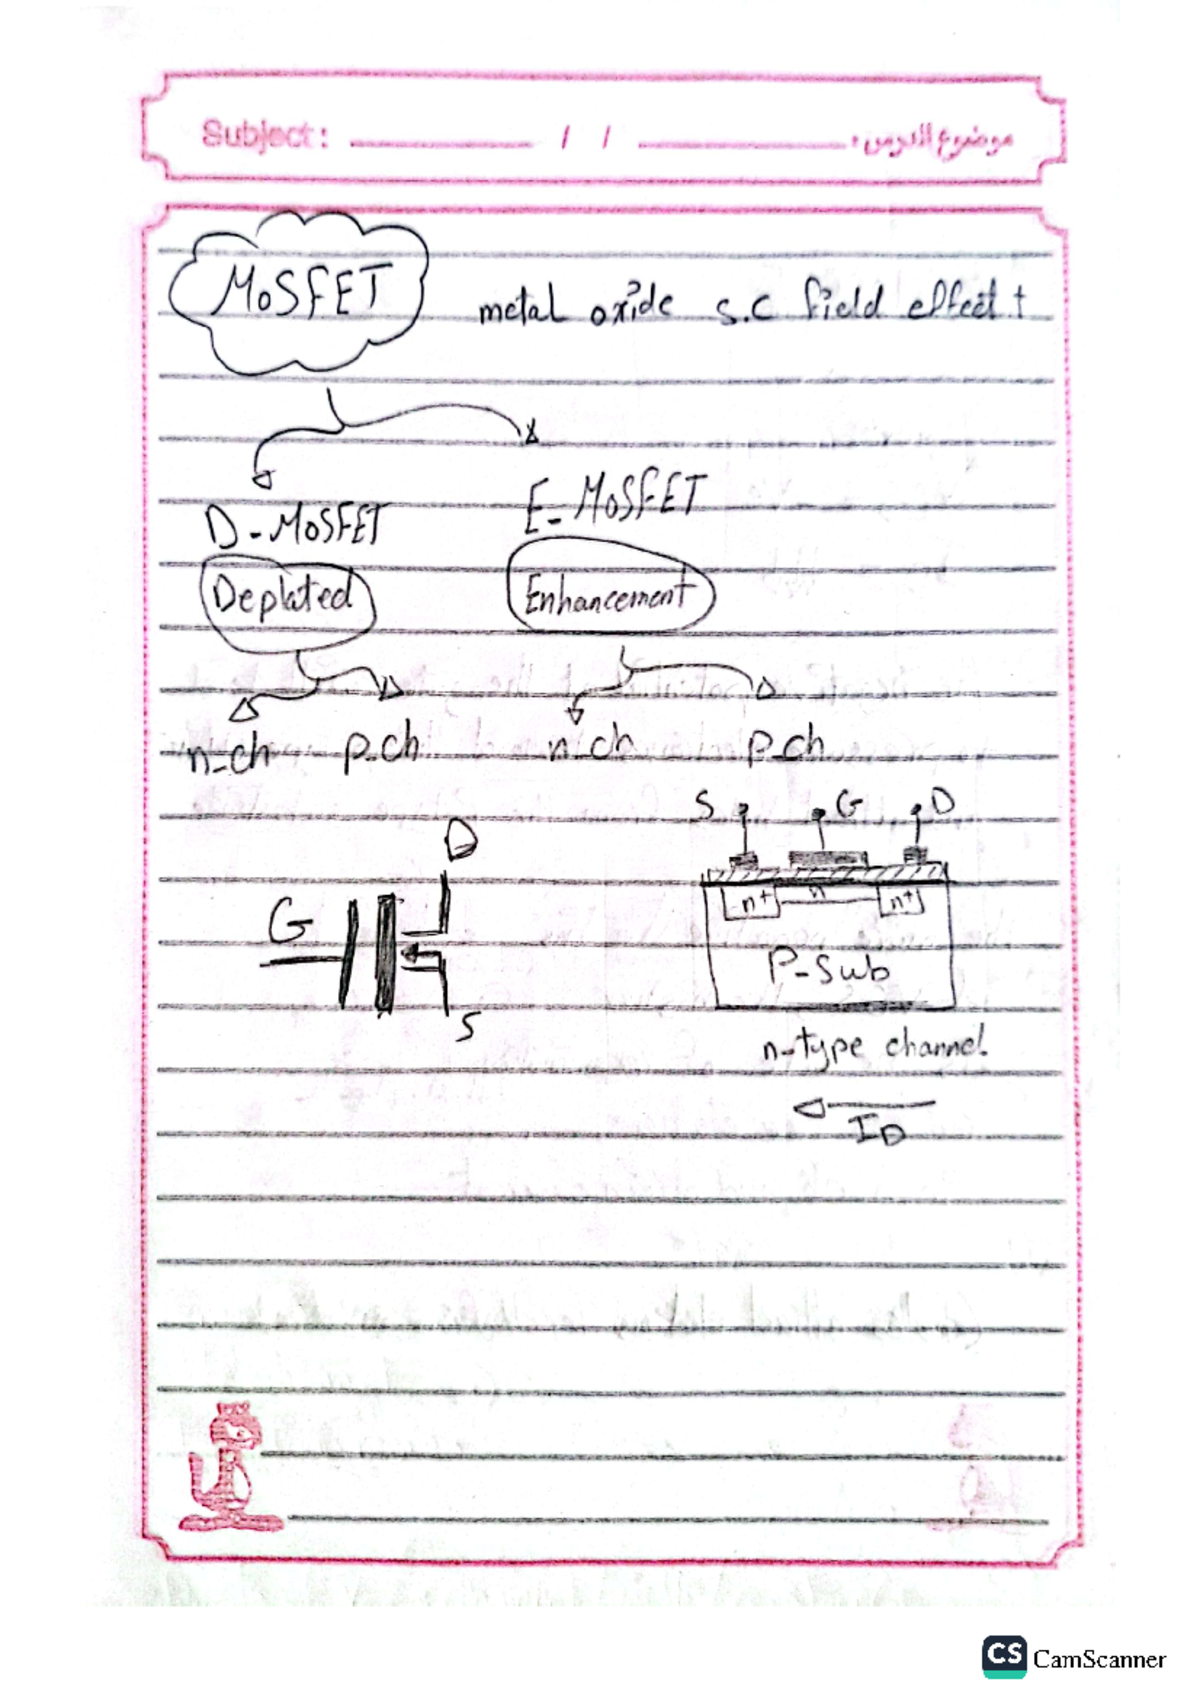 Subject: / / موضوع الدرس:
MOSFET metal oxide s.c field effect t
D-MOSFET E-MOSFET
Depleted Enhancement
n-ch p-ch n-ch p-ch
S G D
D
n+ n n+
G
P-Sub
S
n-type channel
ID
CS CamScanner